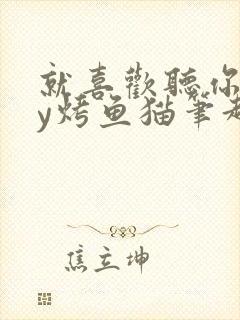 就喜歡聽你
y烤鱼猫筆趣
焦立坤